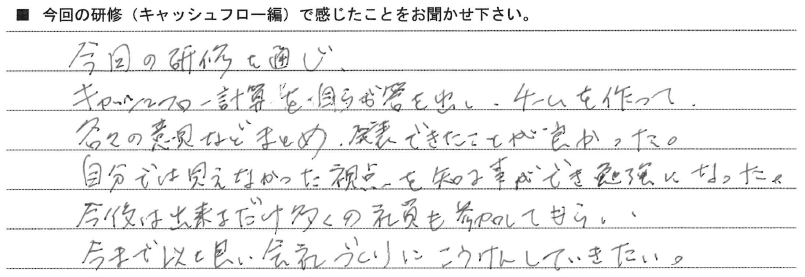 ■ 今回の研修（キャッシュフロー編）で感じたことをお聞かせ下さい。
今回の研修を通じ、
キャッシュフロー計算を自らが答を出し、チームを作って、
各々の意見などまとめ、発表できたことが良かった。
自分では見えなかった視点を知る事ができ勉強になった。
今後は出来るだけ多くの社員も参加してもらい、
今まで以上良い会社づくりにこうけんしていきたい。